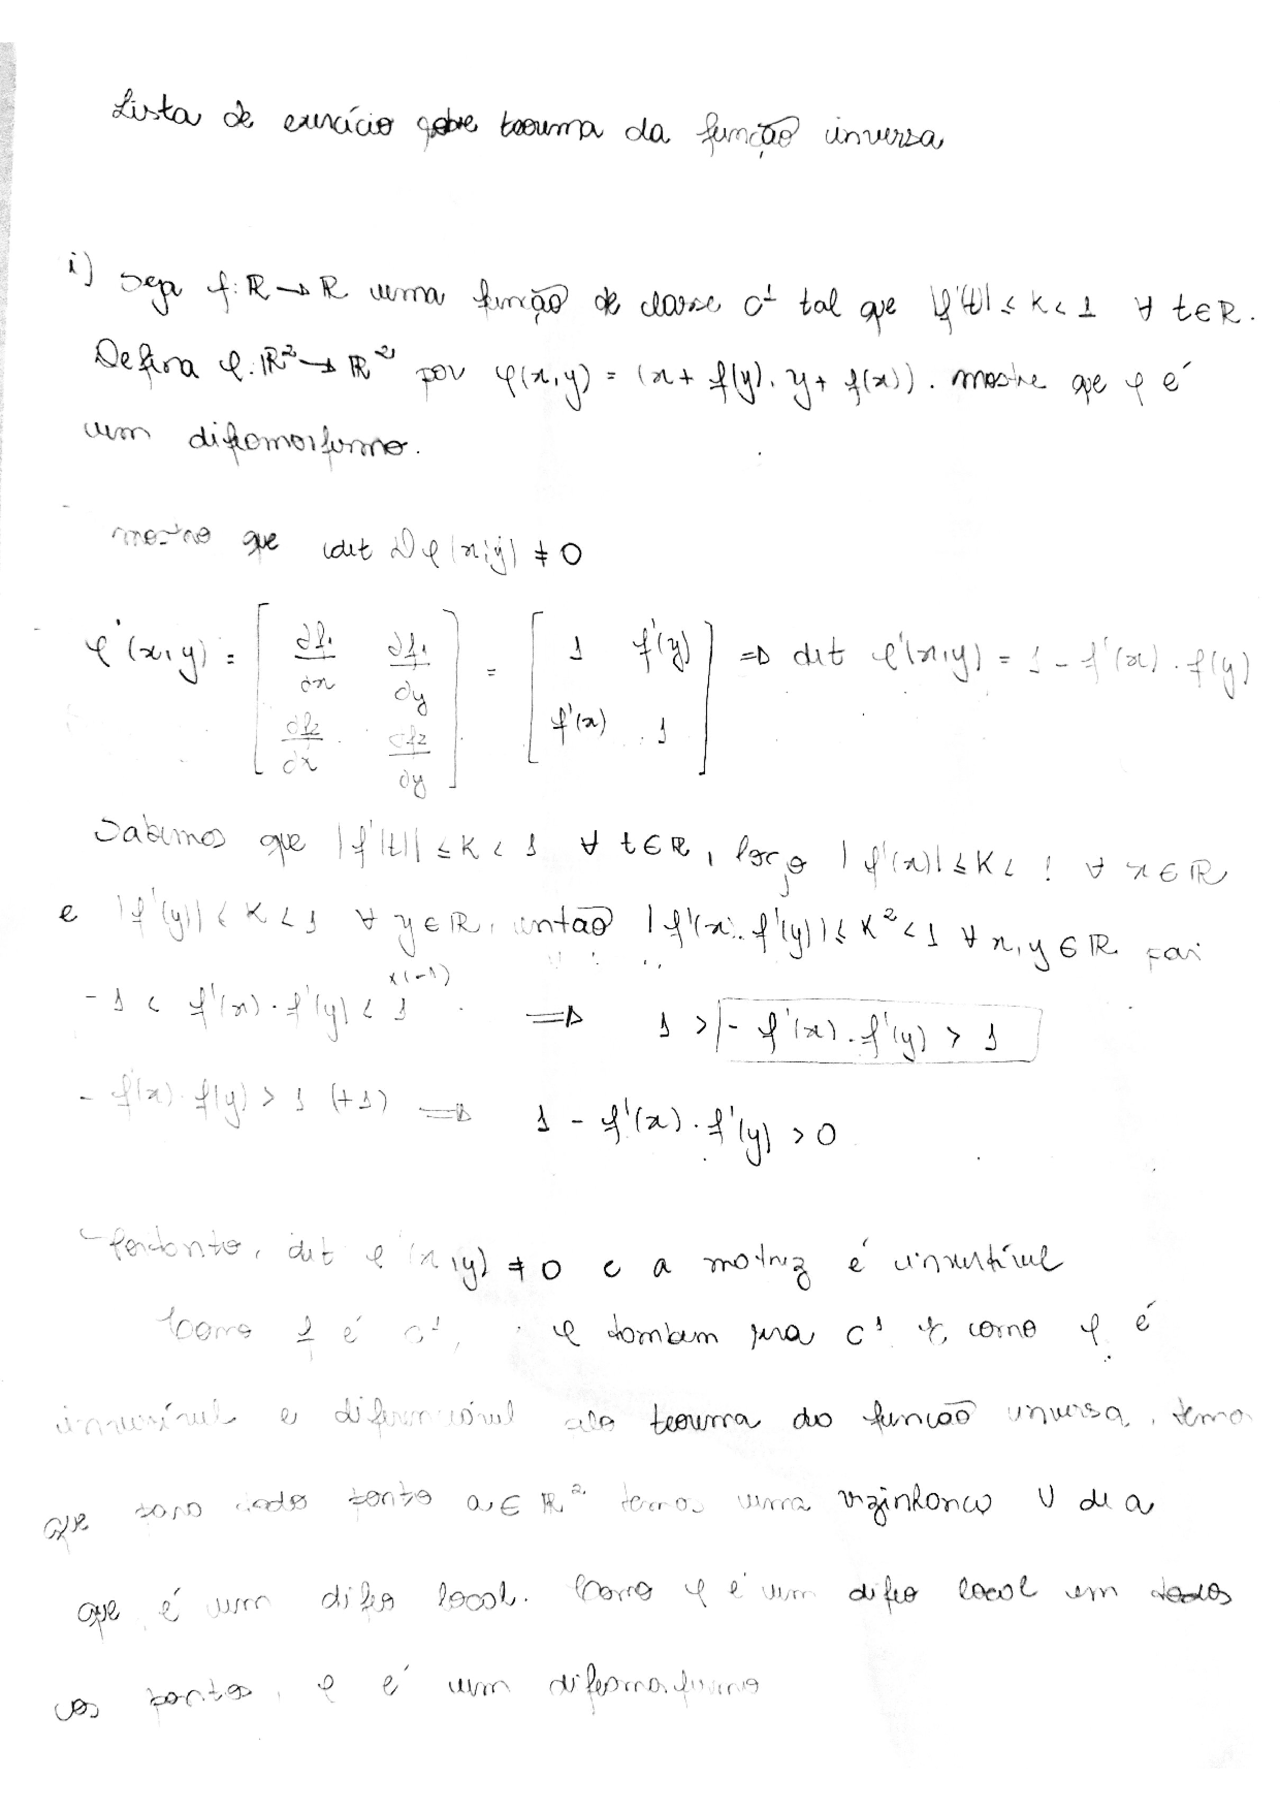 Lista de exercício sobre teorema da função inversa
i) Seja f: ℝ → ℝ uma função de classe C¹ tal que |f'(t)| ≤ K < 1 ∀ t ∈ ℝ.
Defina φ: ℝ² → ℝ² por φ(x,y) = (x + f(y), y + f(x)). mostre que φ é
um difeomorfismo.
mostro que det Dφ(x,y) ≠ 0
φ'(x,y) = [ ∂f₁/∂x ∂f₁/∂y ; ∂f₂/∂x ∂f₂/∂y ] = [ 1 f'(y) ; f'(x) 1 ] ⇒ det φ'(x,y) = 1 - f'(x) . f(y)
Sabemos que |f'(t)| ≤ K < 1 ∀ t ∈ ℝ, logo |f'(x)| ≤ K < 1 ∀ x ∈ ℝ
e |f'(y)| < K < 1 ∀ y ∈ ℝ, então |f'(x) . f'(y)| ≤ K² < 1 ∀ x, y ∈ ℝ
-1 < f'(x) . f'(y) < 1 x(-1) ⇒ 1 > - f'(x) . f'(y) > 1
- f'(x) . f(y) > 1 (+1) ⇒ 1 - f'(x) . f'(y) > 0
Portanto, det φ'(x,y) ≠ 0 e a matriz é invertível
Como f é C¹, φ também será C¹ e, como φ é
inversível e diferenciável pelo teorema da função inversa, temos
que para cada ponto a ∈ ℝ² temos uma vizinhança U de a
que é um difeo local. Como φ é um difeo local em todos
os pontos, φ é um difeomorfismo